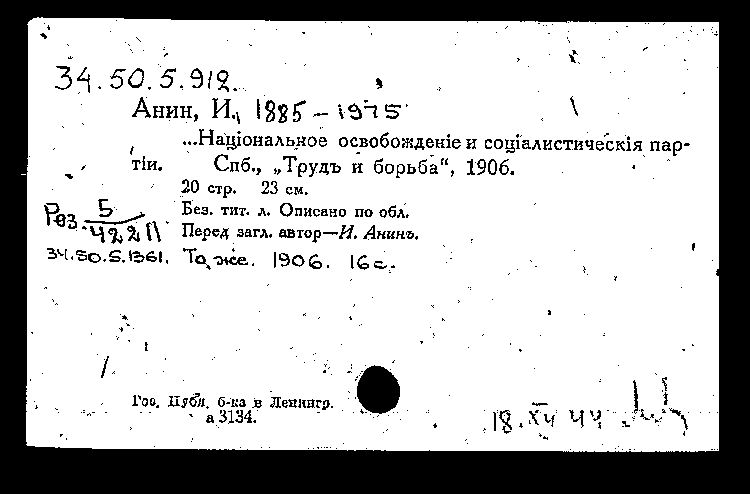 34.50.5.912.
Анин, И., 1885 – 1975
...Національное освобожденіе и соціалистическія пар-
тіи. Спб., „Трудъ и борьба“, 1906.
20 стр. 23 см.
Без. тит. л. Описано по обл.
Рез. 5/422 П Перед загл. автор—И. Анинъ.
34.50.5.1361. То же. 1906. 16 с.
Гос. Публ. б-ка в Ленингр.
а 3134.
18.